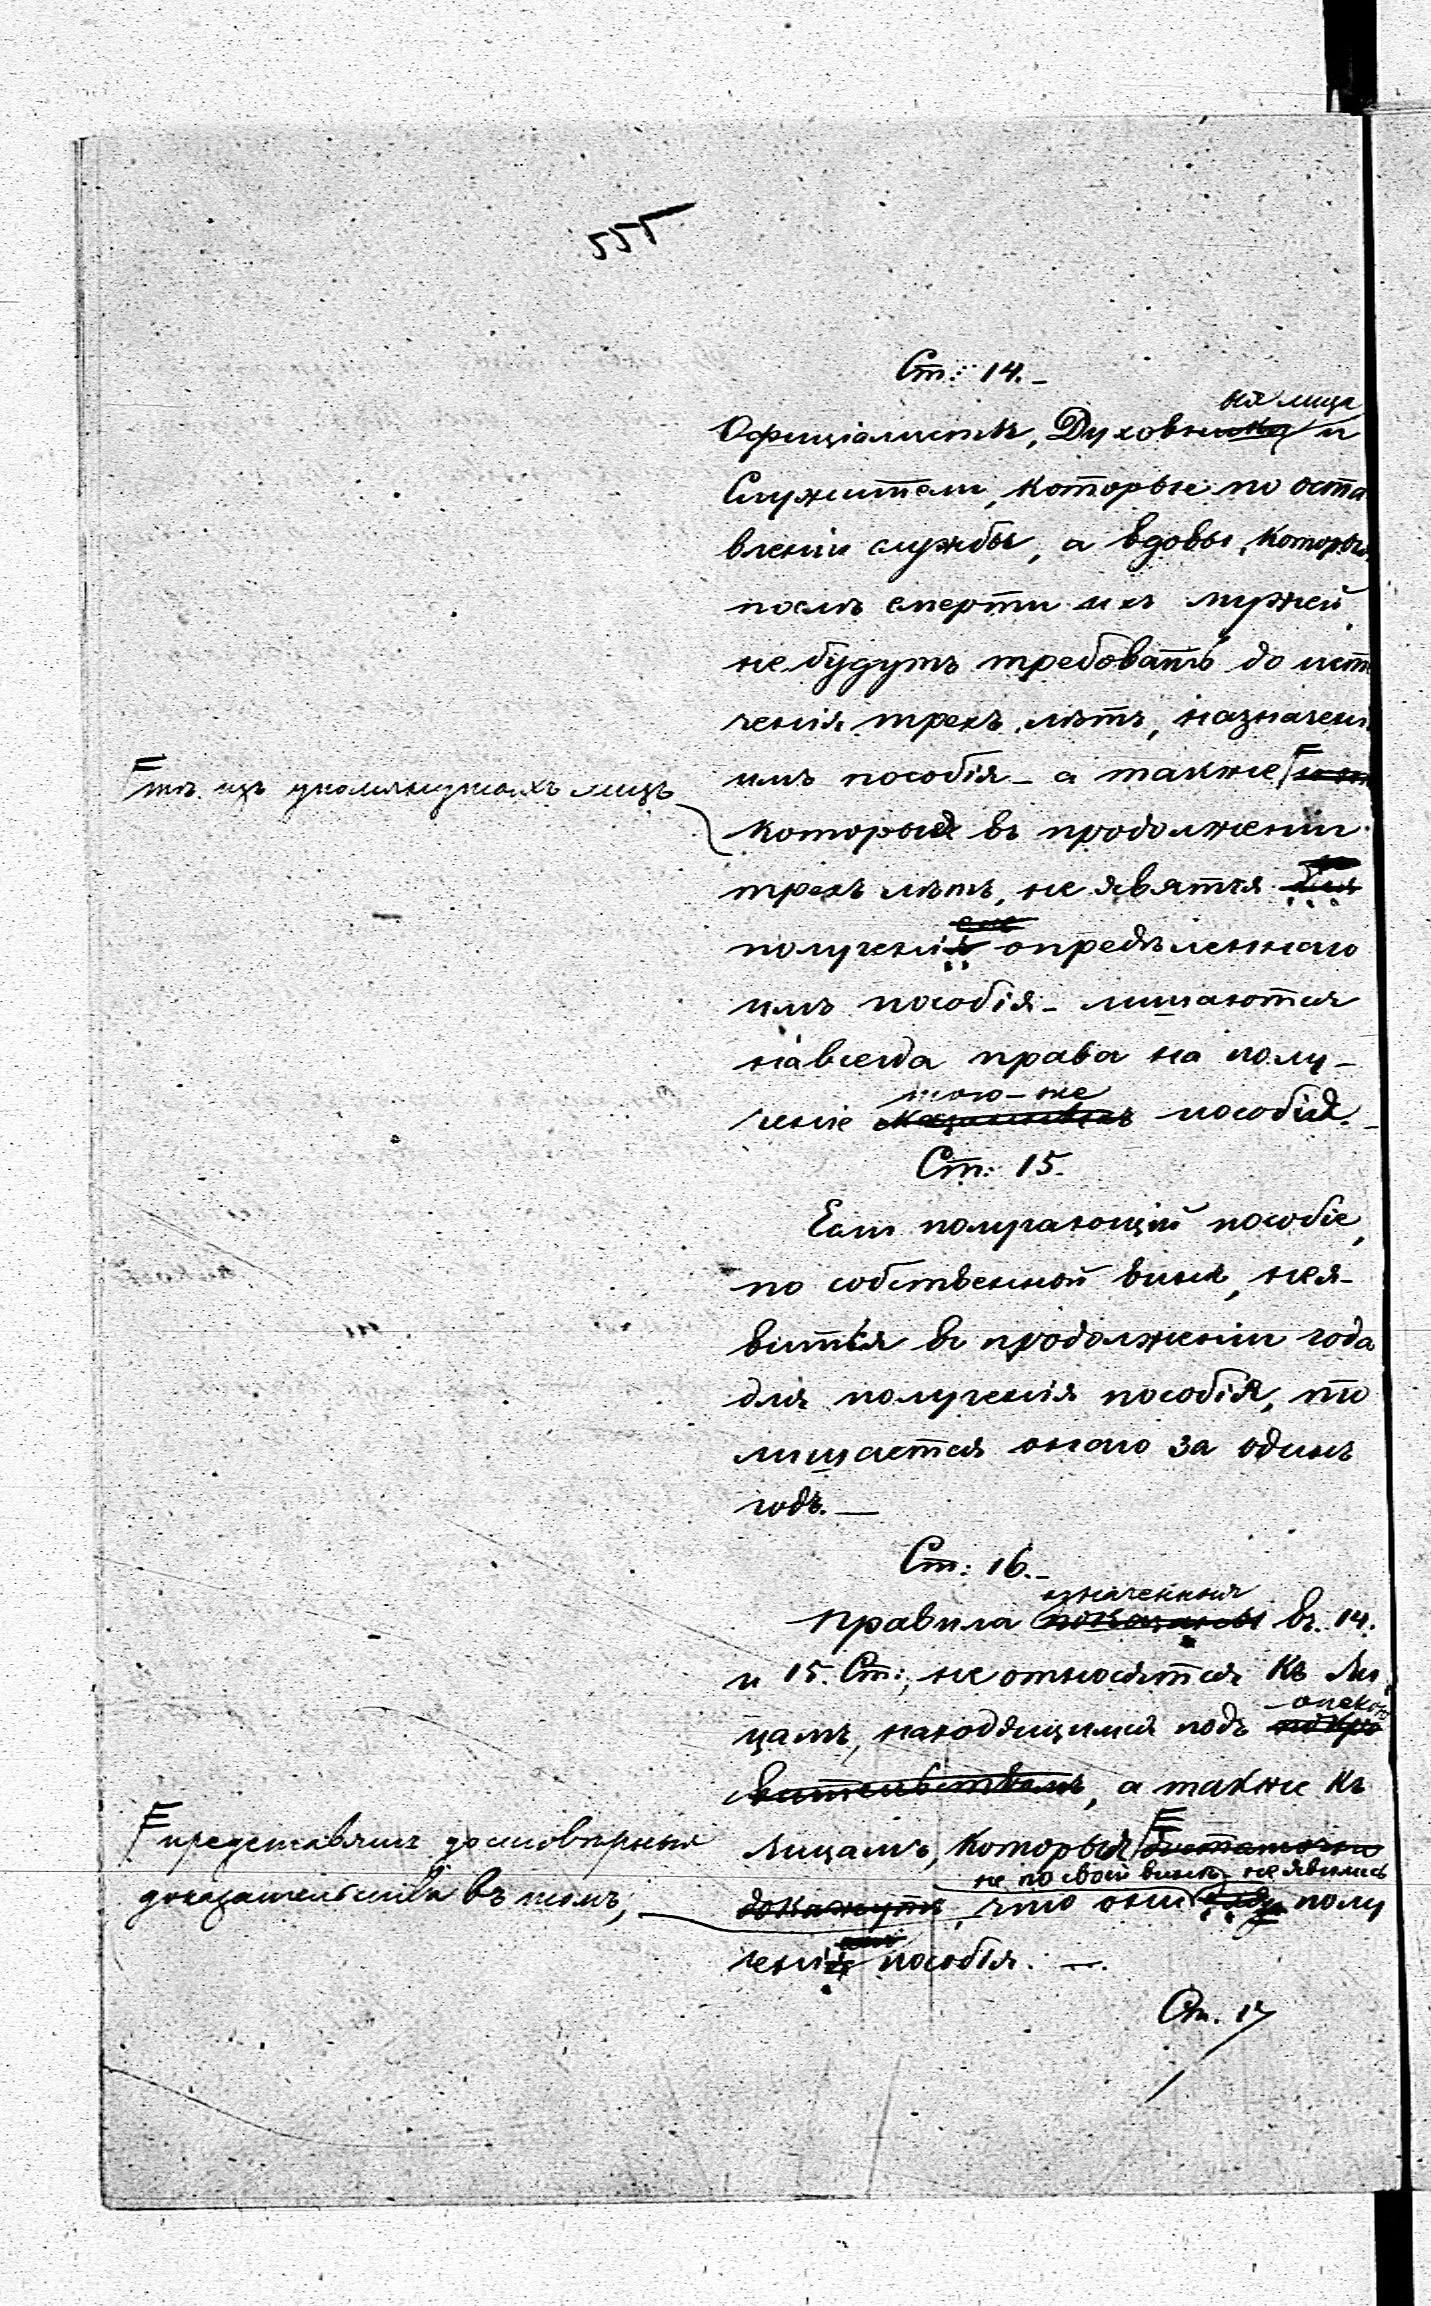 Ст: 14.-
ыя лица
Официалисты, Духовники и
Служители, которые по оста
вленіи службы, а вдовы, которыя
послѣ смерти ихъ мужей
не будутъ требовать до исте
ченія трехъ лѣтъ, назначенія
имъ пособія - а также
тѣ изъ упомянутыхъ лицъ
которыя въ продолженіи
трехъ лѣтъ, не явятся для
полученія опредѣленнаго
имъ пособія - лишаются
навсегда права на полу-
того-же
ченіе пособія.-
Ст: 15.
Если получающій пособіе,
по собственной винѣ, нея-
вится въ продолженіи года
для полученія пособія, то
лишается онаго за одинъ
годъ.—
Ст: 16.-
означенныя
Правила показаны въ 14.
и 15. Ст:, не относятся къ Ли-
опекою
цамъ, находящимся подъ покро
вительствомъ, а также къ
лицамъ, которыя достаточно
представятъ достовѣрныя
доказательства въ томъ,
не по своей винѣ не явились
докажутъ, что они для полу
ченія пособія. —.
Ст. 17